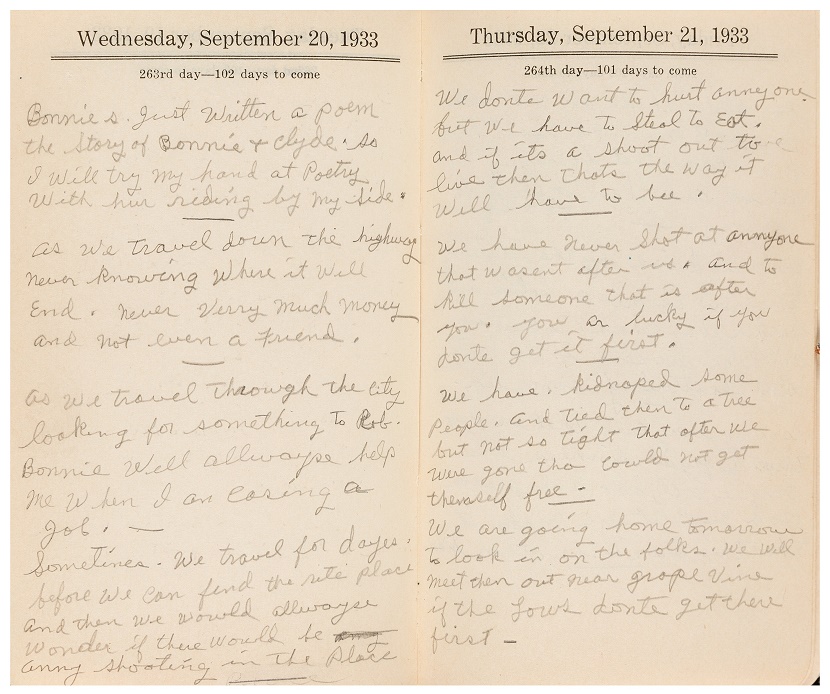 Wednesday, September 20, 1933
263rd day—102 days to come
Bonnie s. Just Written a poem
the Story of Bonnie & Clyde. so
I Will try my hand at Poetry
With hur riding by my side.
as We travel down the highway
never knowing Where it Will
End. never Verry Much Money
and not even a Friend.
as we travel through the city
looking for something to Rob.
Bonnie Will allwayse help
me When I am Casing a
Job.
Sometimes. We travel for dayes.
before We can find the rite place
and then we would allwayse
wonder if there would be
anny shooting in the Place
Thursday, September 21, 1933
264th day—101 days to come
We donte Want to hurt annyone
but We have to Steal to Eat.
and if its a shoot out to
live then thats the way it
Will have to bee.
We have never Shot at annyone
that Wasent after us. and to
kill someone that is after
you. your ar lucky if you
donte get it first.
We have. kidnaped some
People. and tied them to a tree
but not so tight that after we
were gone tha could not get
themself free -
We are going home tomorrow
to look in on the folks. We Will
meet them out near grape Vine
if the Lows donte get there
first -